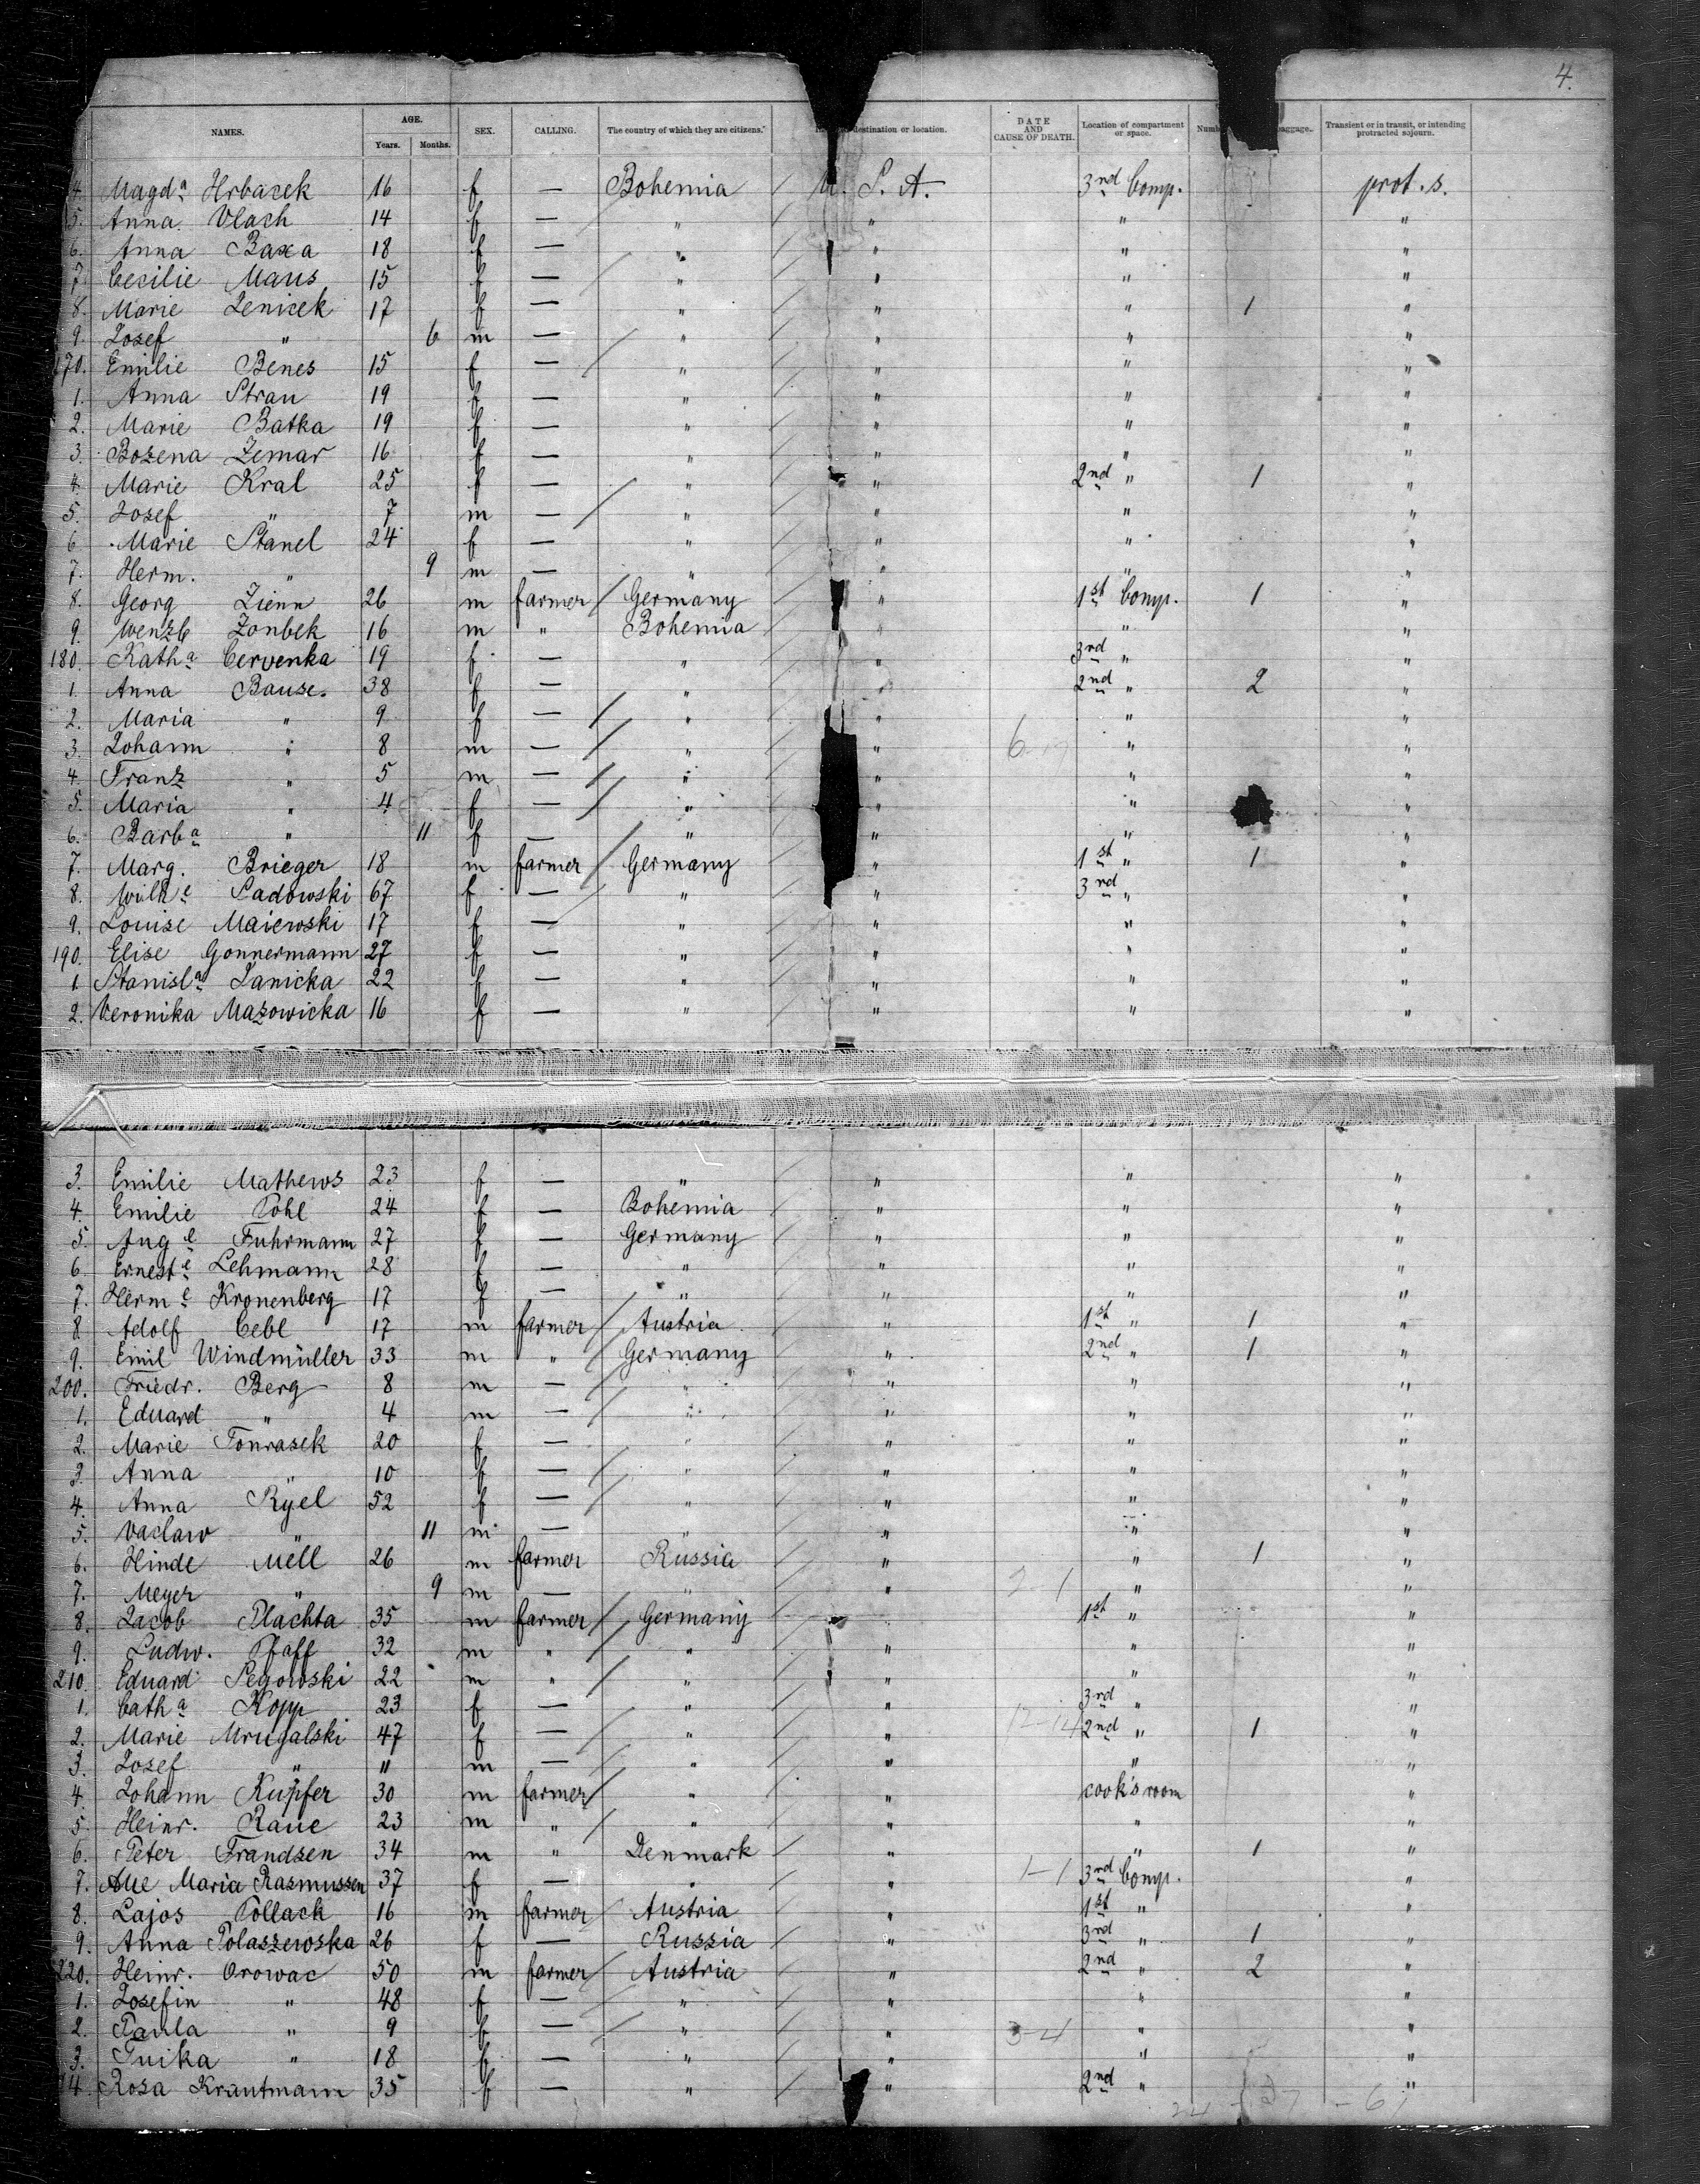 4.
NAMES. AGE. Years. Months. SEX. CALLING. The country of which they are citizens. destination or location. DATE AND CAUSE OF DEATH. Location of compartment or space. Numb baggage. Transient or in transit, or intending protracted sojourn.
4. Magdª Hrbacek 16 f — Bohemia / U. S. A. 3rd Comp. prot. s.
5. Anna Vlach 14 f — " " " "
6. Anna Baxa 18 f — " " " "
7. Cecilie Maus 15 f — " " " "
8. Marie Jenicek 17 f — " " " 1 "
9. Josef " 6 m — " " " "
170. Emilie Benes 15 f — " " " "
1. Anna Stran 19 f — " " " "
2. Marie Batka 19 f — " " " "
3. Bozena Zemar 16 f — " " " "
4. Marie Kral 25 f — " " 2nd " 1 "
5. Josef " 7 m — " " " "
6. Marie Stanel 24 f — " " " "
7. Herm. " 9 m — " " " "
8. Georg Zienn 26 m farmer Germany " 1st Comp. 1 "
9. Wenzl Zonbek 16 m " Bohemia " " "
180. Kathª Cervenka 19 f — " " 3rd " "
1. Anna Bause. 38 f — " " 2nd " 2 "
2. Maria " 9 f — " " " "
3. Johann " 8 m — " " 6 " "
4. Franz " 5 m — " " " "
5. Maria " 4 f — " " " "
6. Barbª " 11 f — " " " "
7. Marg. Brieger 18 m farmer Germany " 1st " 1 "
8. Wilhe Sadowski 67 f — " " 3rd " "
9. Louise Maiewski 17 f — " " " "
190. Elise Gonnermann 27 f — " " " "
1. Stanislª Janicka 22 f — " " " "
2. Veronika Mazowicka 16 f — " " " "
3. Emilie Mathews 23 f — " " " "
4. Emilie Pohl 24 f — Bohemia " " "
5. Auge Fuhrmann 27 f — Germany " " "
6. Erneste Lehmann 28 f — " " " "
7. Herme Kronenberg 17 f — " " " "
8. Adolf Cebl 17 m farmer Austria " 1st " 1 "
9. Emil Windmüller 33 m " Germany " 2nd " 1 "
200. Friedr. Berg 8 m — " " " "
1. Eduard " 4 m — " " " "
2. Marie Tonrasek 20 f — " " " "
3. Anna " 10 f — " " " "
4. Anna Ryel 52 f — " " " "
5. Vaclaw " 11 m — " " " "
6. Hinde Mell 26 m farmer Russia " " 1 "
7. Meyer " 9 m — " " " "
8. Jacob Plachta 35 m farmer Germany " 1st " "
9. Ludw. Pfaff 32 m " " " " "
210. Eduard Segowski 22 m " " " " "
1. Cathª Kopp 23 f — " " 3rd " "
2. Marie Mrugalski 47 f — " " 2nd " 1 "
3. Josef " 11 m — " " " "
4. Johann Kupfer 30 m farmer " " cook's room "
5. Heinr. Raue 23 m " " " " "
6. Peter Frandsen 34 m " Denmark " " 1 "
7. Ane Maria Rasmussen 37 f — " " 1-1 3rd Comp. "
8. Lajos Pollack 16 m farmer Austria " 1st " "
9. Anna Polaszewska 26 f — Russia " 3rd " 1 "
220. Heinr. Orowac 50 m farmer Austria " 2nd " 2 "
1. Josefin " 48 f — " " " "
2. Paula " 9 f — " " 3-4 " "
3. Tuika " 18 f — " " " "
4. Rosa Krautmann 35 f — " " 2nd " "